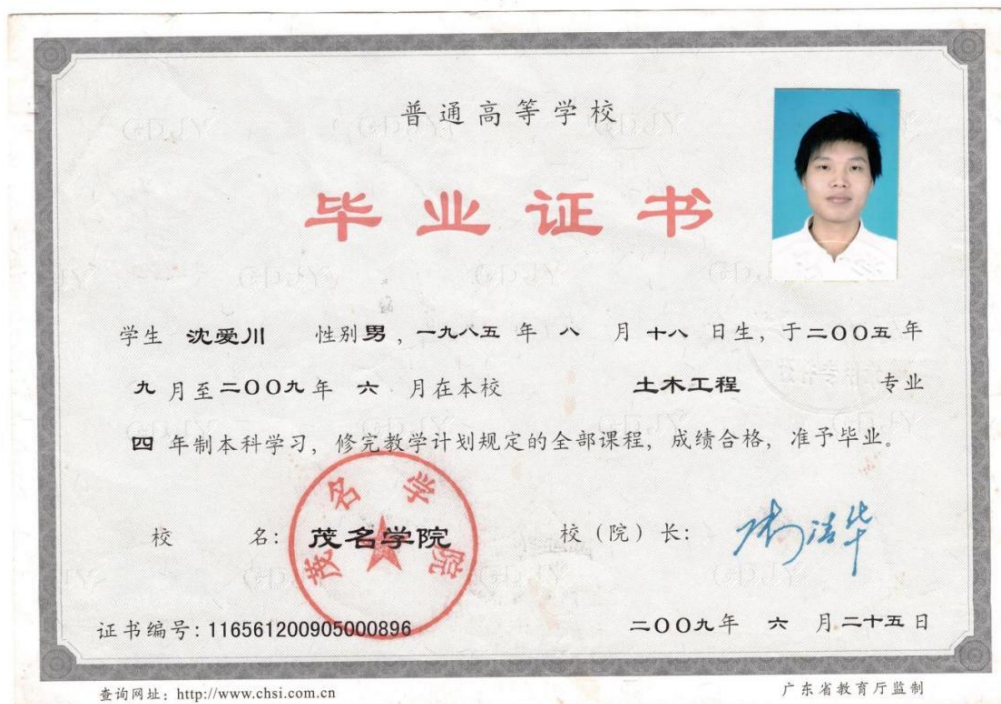 普通高等学校
毕业证书
学生 沈爱川 性别男，一九八五 年 八 月 十八 日生，于二〇〇五 年
九 月至二〇〇九年 六 月在本校 土木工程 专业
四 年制本科学习，修完教学计划规定的全部课程，成绩合格，准予毕业。
校 名：茂名学院 校（院）长：
茂名学院
证书编号：116561200905000896 二〇〇九年 六 月二十五日
查询网址：http://www.chsi.com.cn 广东省教育厅监制